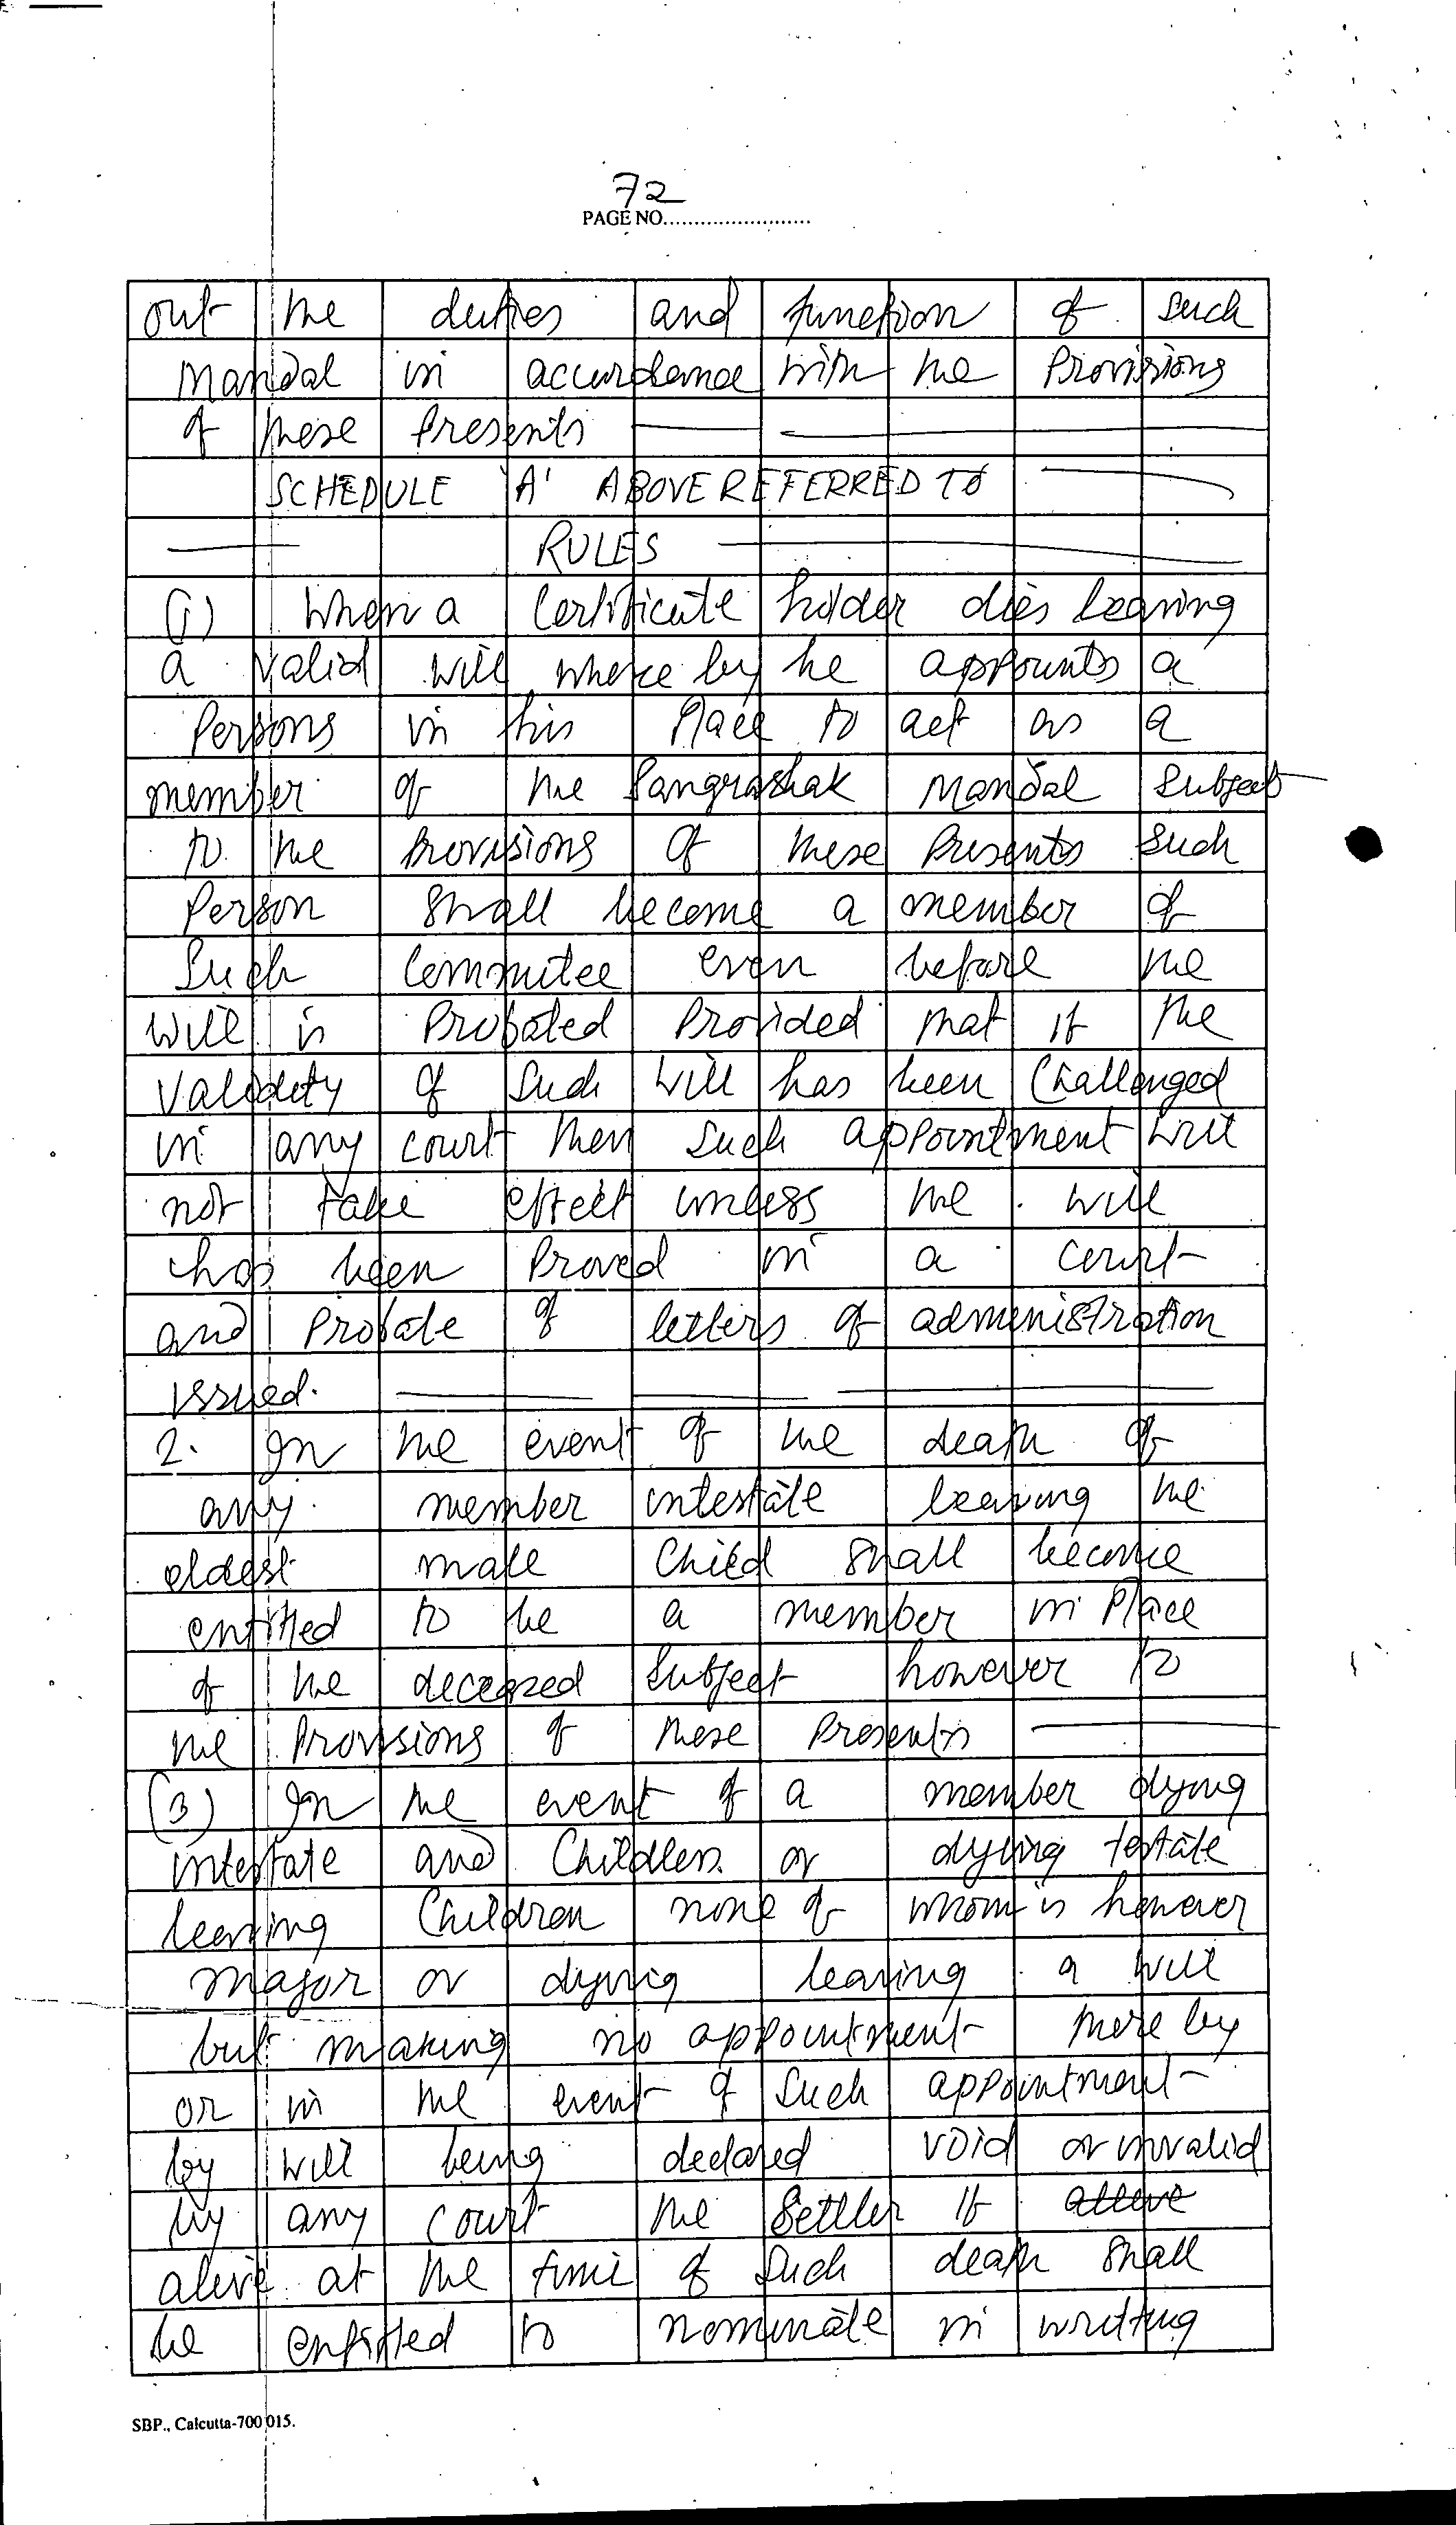 72
PAGE NO..........................
out the duties and function of such
Mandal in accordance with the Provisions
of these Presents
SCHEDULE 'A' ABOVE REFERRED TO
RULES
(1) When a Certificate holder dies leaving
a valid will where by he appoints a
Persons in his Place to act as a
member of the Sangrashak Mandal Subject
to the Provisions of these Presents such
Person shall become a member of
Such Committee even before the
will is Probated Provided that if the
validity of Such Will has been Challenged
in any court then such appointment will
not take effect unless the will
has been Proved in a court
and Probate of letters of administration
issued.
2. In the event of the death of
any member intestate leaving the
eldest male Child shall become
entitled to be a member in Place
of the deceased Subject however to
the Provisions of these Presents
(3) In the event of a member dying
intestate and Childless or dying testate
leaving Children none of whom is however
major or dying leaving a will
but making no appointment there by
or in the event of Such appointment
by will being declared void or invalid
by any court the Settler if
alive at the time of Such death shall
be entitled to nominate in writing
SBP., Calcutta-700 015.